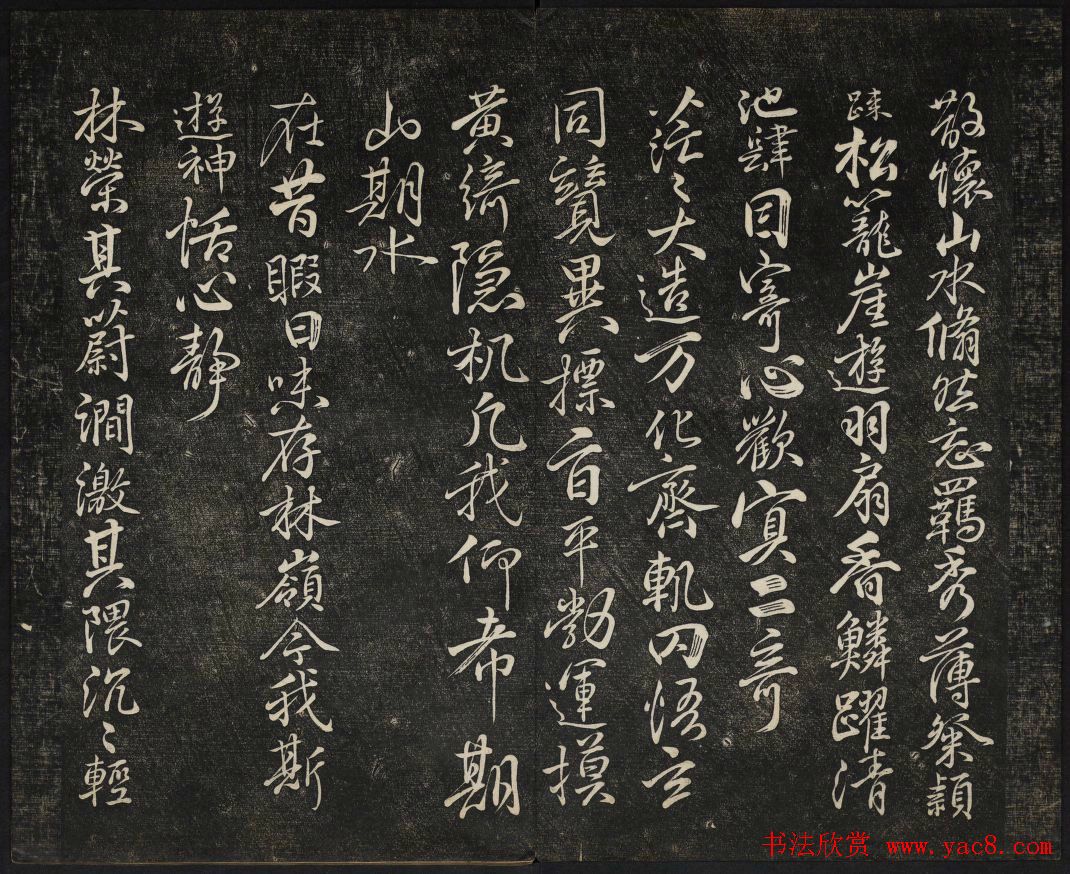 散懷山水翛然忘羈秀薄粲穎
疎松籠崖遊羽扇香鱗躍清
池肆目寄心歡冥二奇
茫〻大造万化齊軌罔悟玄
同競異標旨平勃運摸
黃綺隱机凡我仰希期
山期水
在昔暇日味存林嶺今我斯
遊神恬心靜
林榮其蔚澗激其隈沉〻輕
书法欣赏 www.yac8.com